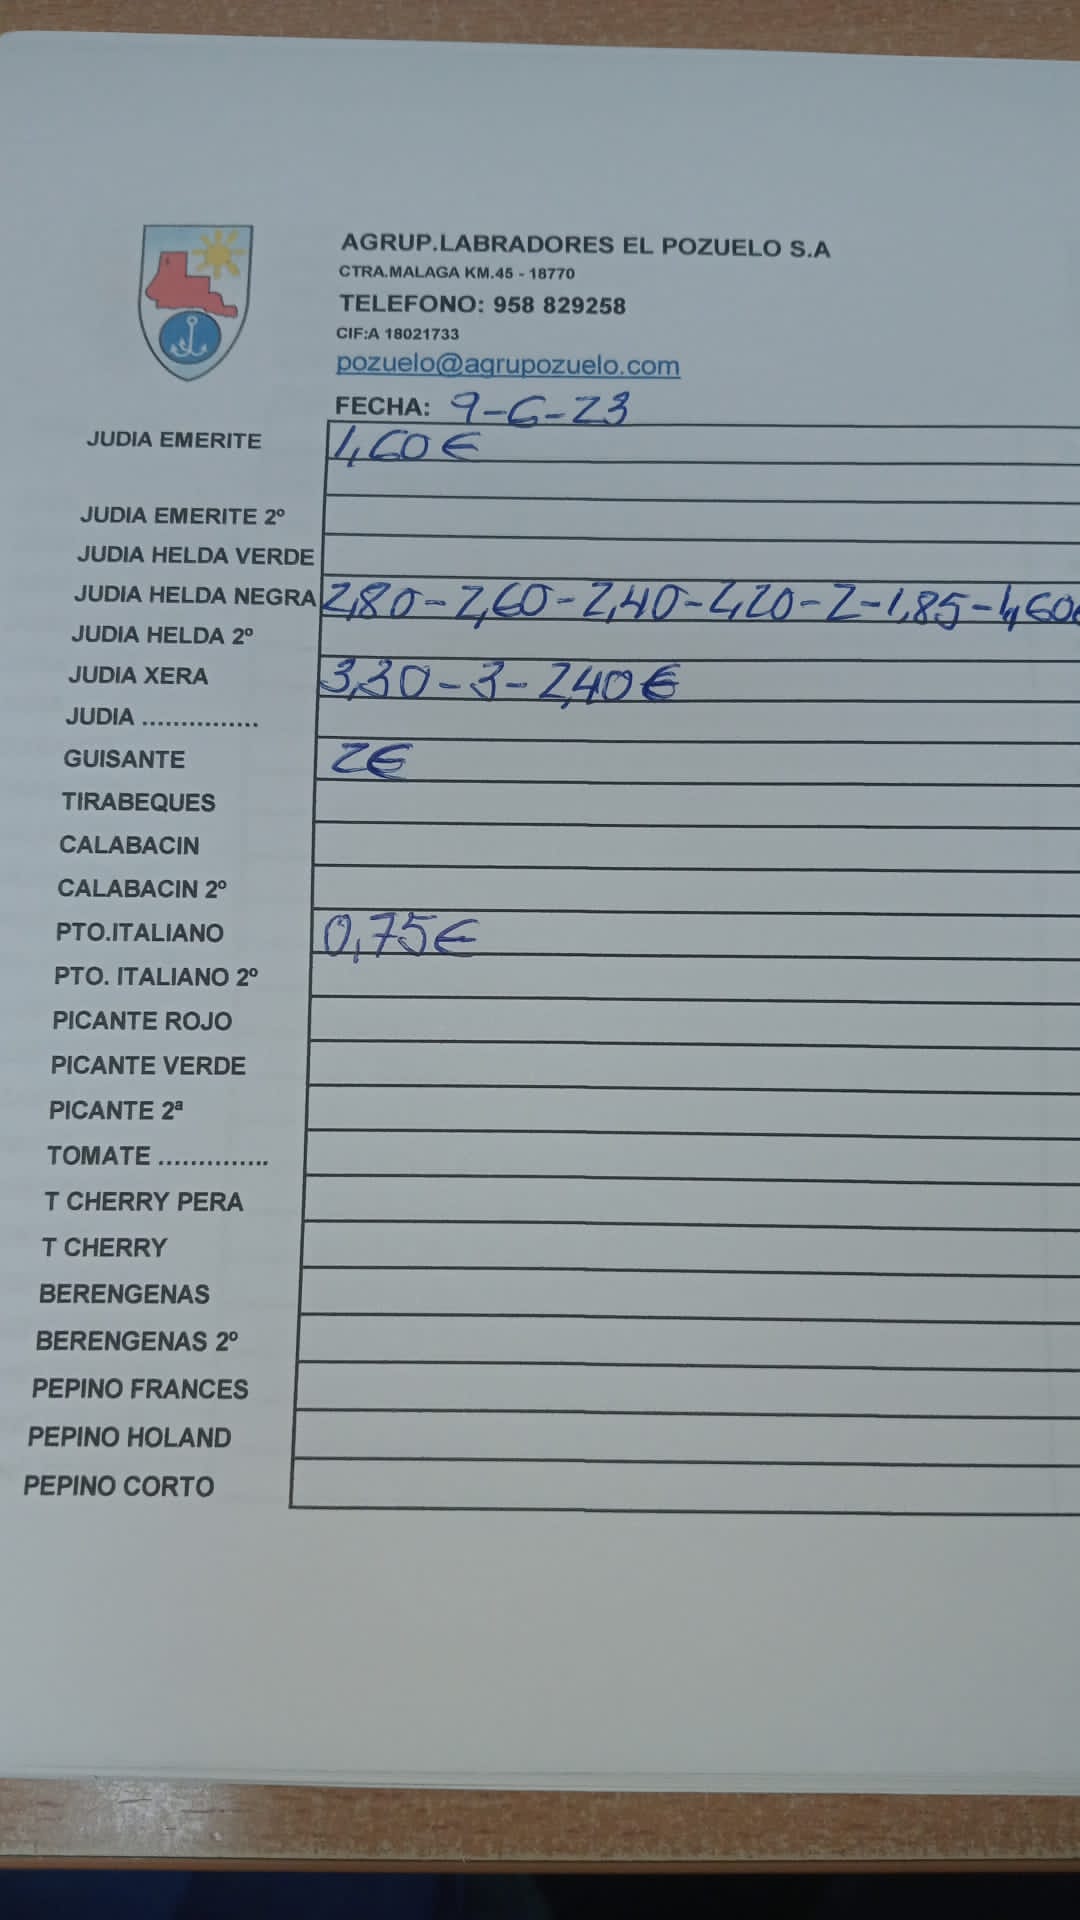 AGRUP.LABRADORES EL POZUELO S.A
CTRA.MALAGA KM.45 - 18770
TELEFONO: 958 829258
CIF:A 18021733
pozuelo@agrupozuelo.com
FECHA: 9-6-23
JUDIA EMERITE 1,60€
JUDIA EMERITE 2º
JUDIA HELDA VERDE
JUDIA HELDA NEGRA 2,80-2,60-2,40-2,20-2-1,85-1,60€
JUDIA HELDA 2º
JUDIA XERA 3,30-3-2,40€
JUDIA ...............
GUISANTE 2€
TIRABEQUES
CALABACIN
CALABACIN 2º
PTO.ITALIANO 0,75€
PTO. ITALIANO 2º
PICANTE ROJO
PICANTE VERDE
PICANTE 2ª
TOMATE ..............
T CHERRY PERA
T CHERRY
BERENGENAS
BERENGENAS 2º
PEPINO FRANCES
PEPINO HOLAND
PEPINO CORTO